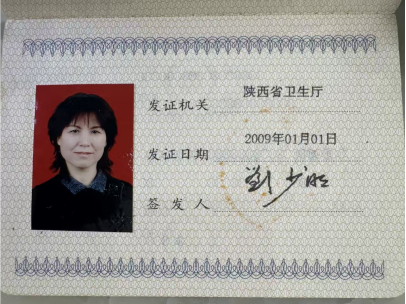 发证机关 陕西省卫生厅
发证日期 2009年01月01日
签发人